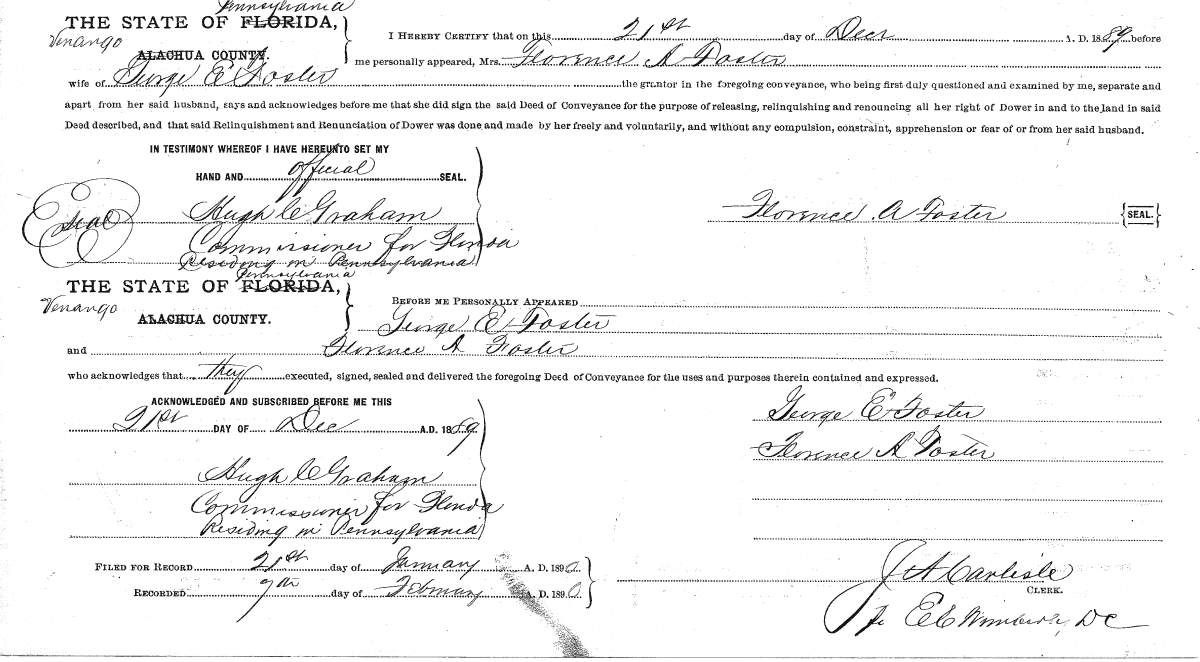 Pennsylvania
THE STATE OF FLORIDA,
Venango
ALACHUA COUNTY.
I HEREBY CERTIFY that on this 21st day of Decr A. D. 1889 before
me personally appeared, Mrs. Florence A Foster
wife of George E Foster the grantor in the foregoing conveyance, who being first duly questioned and examined by me, separate and
apart from her said husband, says and acknowledges before me that she did sign the said Deed of Conveyance for the purpose of releasing, relinquishing and renouncing all her right of Dower in and to the land in said
Deed described, and that said Relinquishment and Renunciation of Dower was done and made by her freely and voluntarily, and without any compulsion, constraint, apprehension or fear of or from her said husband.
IN TESTIMONY WHEREOF I HAVE HEREUNTO SET MY
HAND AND official SEAL.
Seal Hugh C Graham
Commissioner for Florida
Residing in Pennsylvania
Florence A Foster {SEAL.}
Pennsylvania
THE STATE OF FLORIDA,
Venango
ALACHUA COUNTY.
BEFORE ME PERSONALLY APPEARED
George E Foster
and Florence A Foster
who acknowledges that they executed, signed, sealed and delivered the foregoing Deed of Conveyance for the uses and purposes therein contained and expressed.
ACKNOWLEDGED AND SUBSCRIBED BEFORE ME THIS
21st DAY OF Dec A.D. 1889
Hugh C Graham
Commissioner for Florida
Residing in Pennsylvania
George E Foster
Florence A Foster
FILED FOR RECORD 21st day of January A. D. 1890.
RECORDED 7th day of February A. D. 1890.
J A Carlisle
CLERK.
E C DC